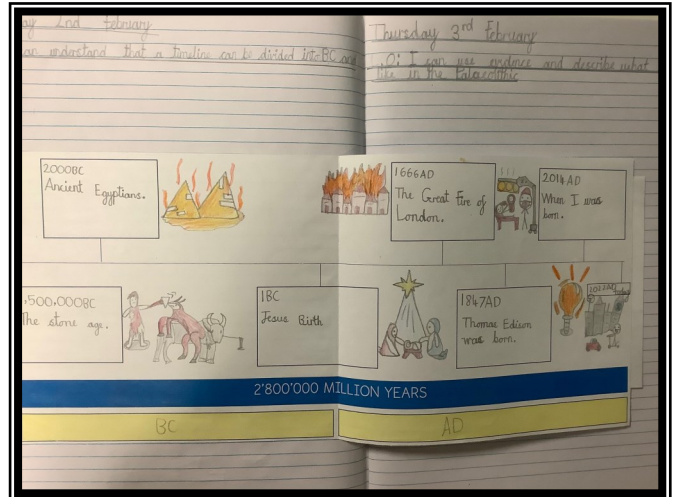 2nd February
an understand that a timeline can be divided into BC and
Thursday 3rd February
I can use evidence and describe what
like in the Palaeolithic
2000BC
Ancient Egyptians.
1666AD
The Great Fire of
London.
2014 AD
When I was
born.
,500,000BC
The stone age.
1BC
Jesus Birth
1847AD
Thomas Edison
was born.
2'800'000 MILLION YEARS
BC
AD